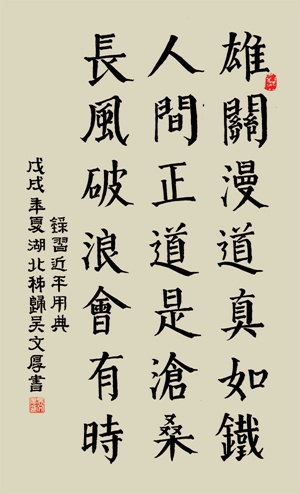 雄關漫道真如鐵
人間正道是滄桑
長風破浪會有時
錄習近平用典
戊戌年夏湖北秭歸吴文厚書